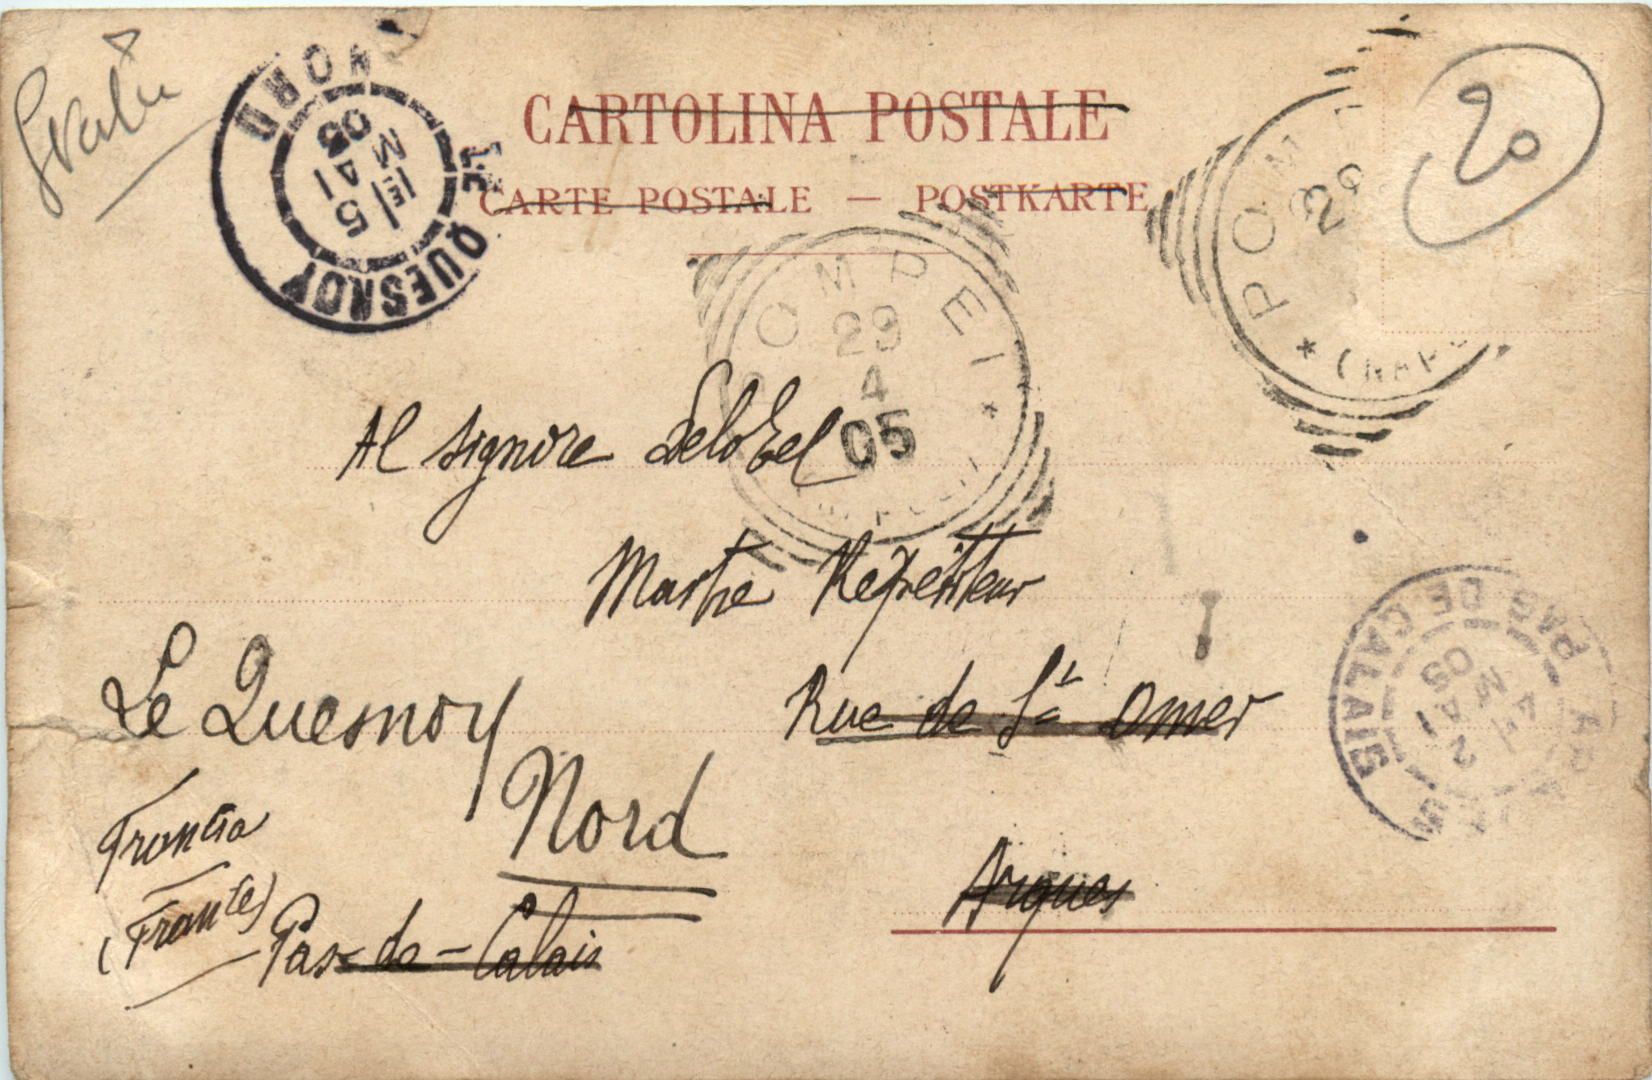 CARTOLINA POSTALE
CARTE POSTALE — POSTKARTE
20
LE QUESNOY
NORD
1E
5 MAI
05
POMPEI
29
4
05
POMPEI
29
PAS DE CALAIS
2
4 MAI
05
Al signore Delobel
Maître Répétiteur
Rue de St Omer
Arques
Le Quesnoy
Nord
Francia
(France)
Pas-de-Calais